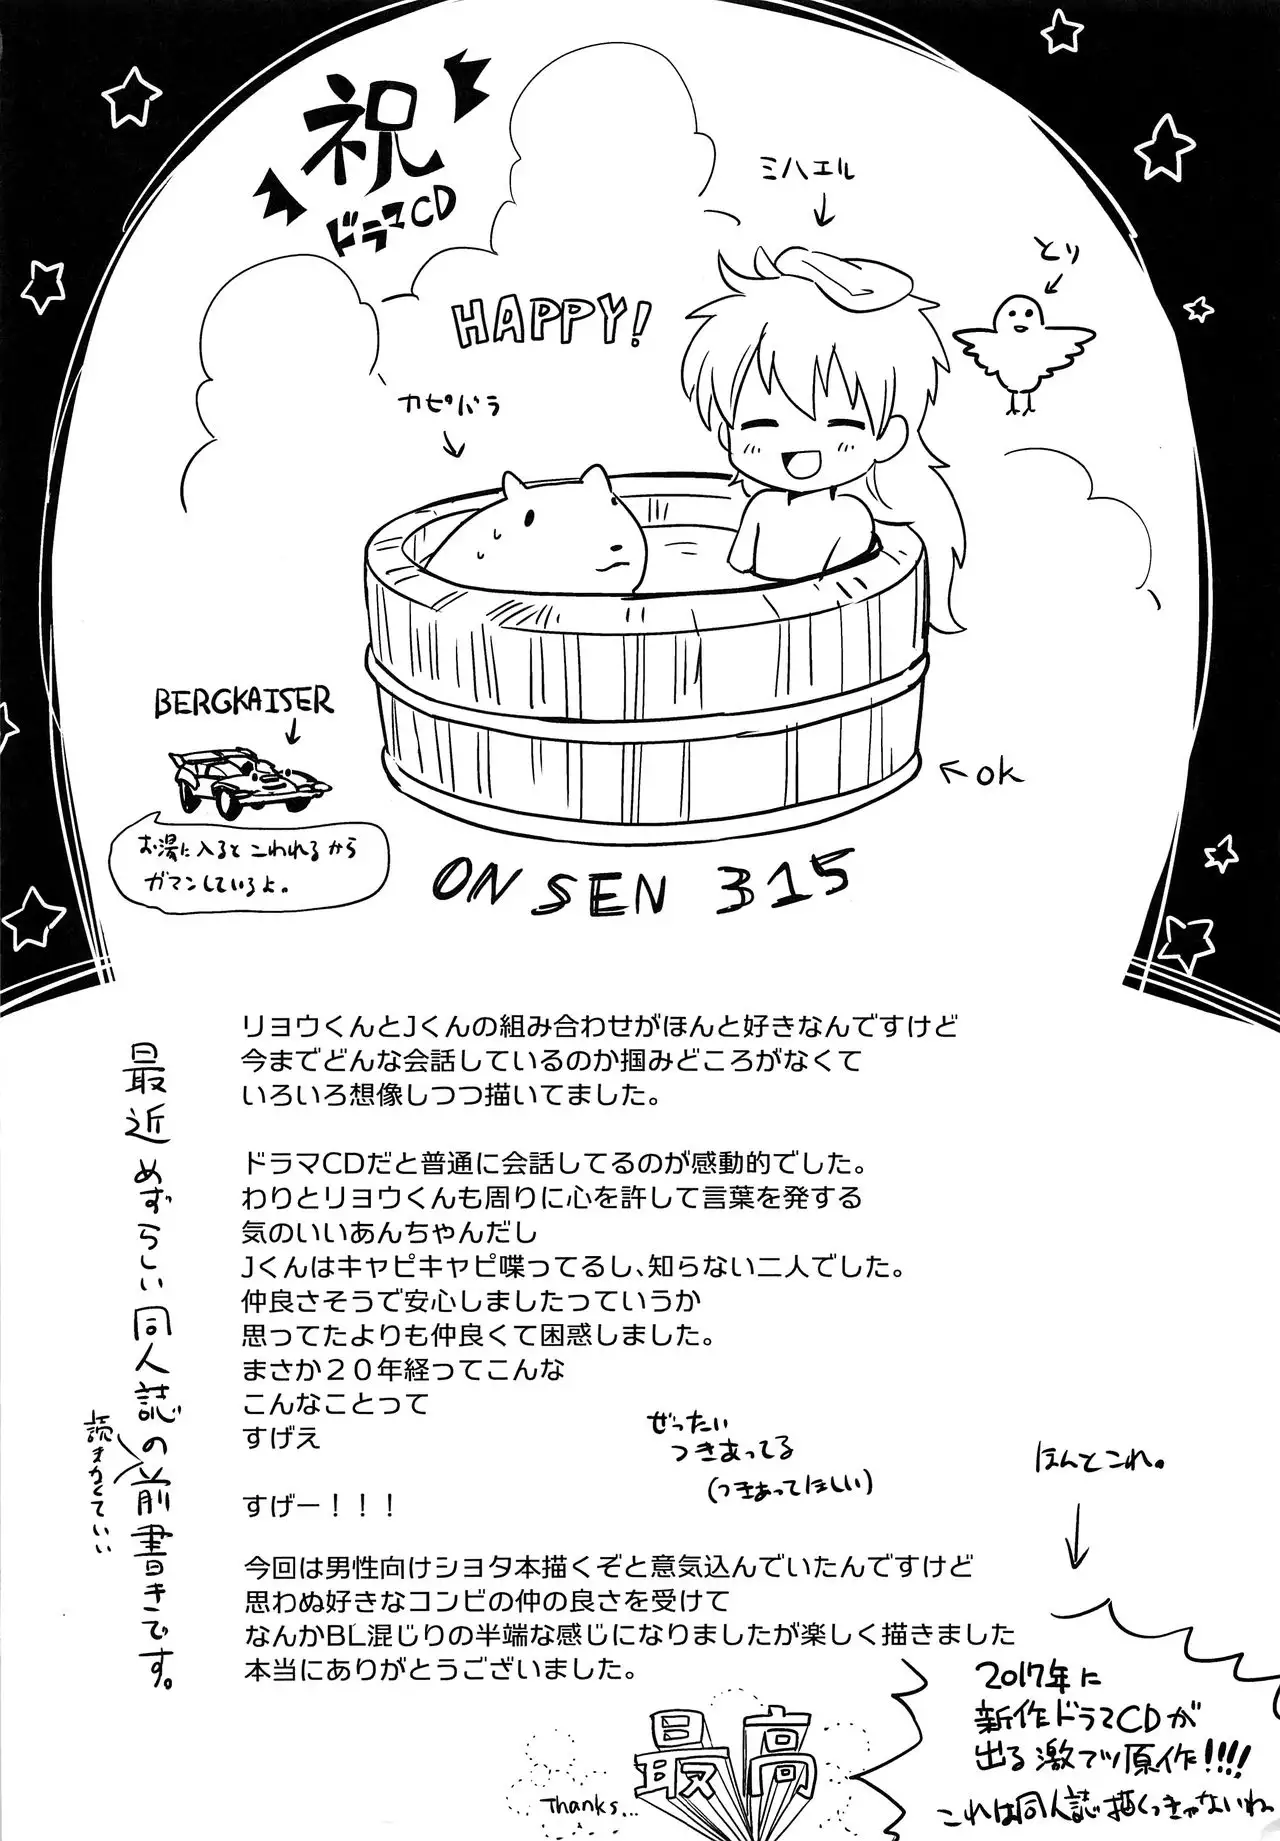 祝
ドラマCD
ミハエル
とり
HAPPY!
カピバラ
BERGKAISER
お湯に入るとこわれるから
ガマンしているよ。
←ok
ONSEN 315
最近めずらしい同人誌の前書きです。
読まなくていい
リヨウくんとJくんの組み合わせがほんと好きなんですけど
今までどんな会話しているのか掴みどころがなくて
いろいろ想像しつつ描いてました。
ドラマCDだと普通に会話してるのが感動的でした。
わりとリヨウくんも周りに心を許して言葉を発する
気のいいあんちゃんだし
Jくんはキャピキャピ喋ってるし、知らない二人でした。
仲良さそうで安心しましたっていうか
思ってたよりも仲良くて困惑しました。
まさか20年経ってこんな
こんなことって
すげえ
すげー！！！
ぜったい
つきあってる
(つきあってほしい)
ほんとこれ。
今回は男性向けショタ本描くぞと意気込んでいたんですけど
思わぬ好きなコンビの仲の良さを受けて
なんかBL混じりの半端な感じになりましたが楽しく描きました
本当にありがとうございました。
Thanks...
最高
2017年に
新作ドラマCDが
出る激アツ原作!!!!
これは同人誌描くっきゃないね